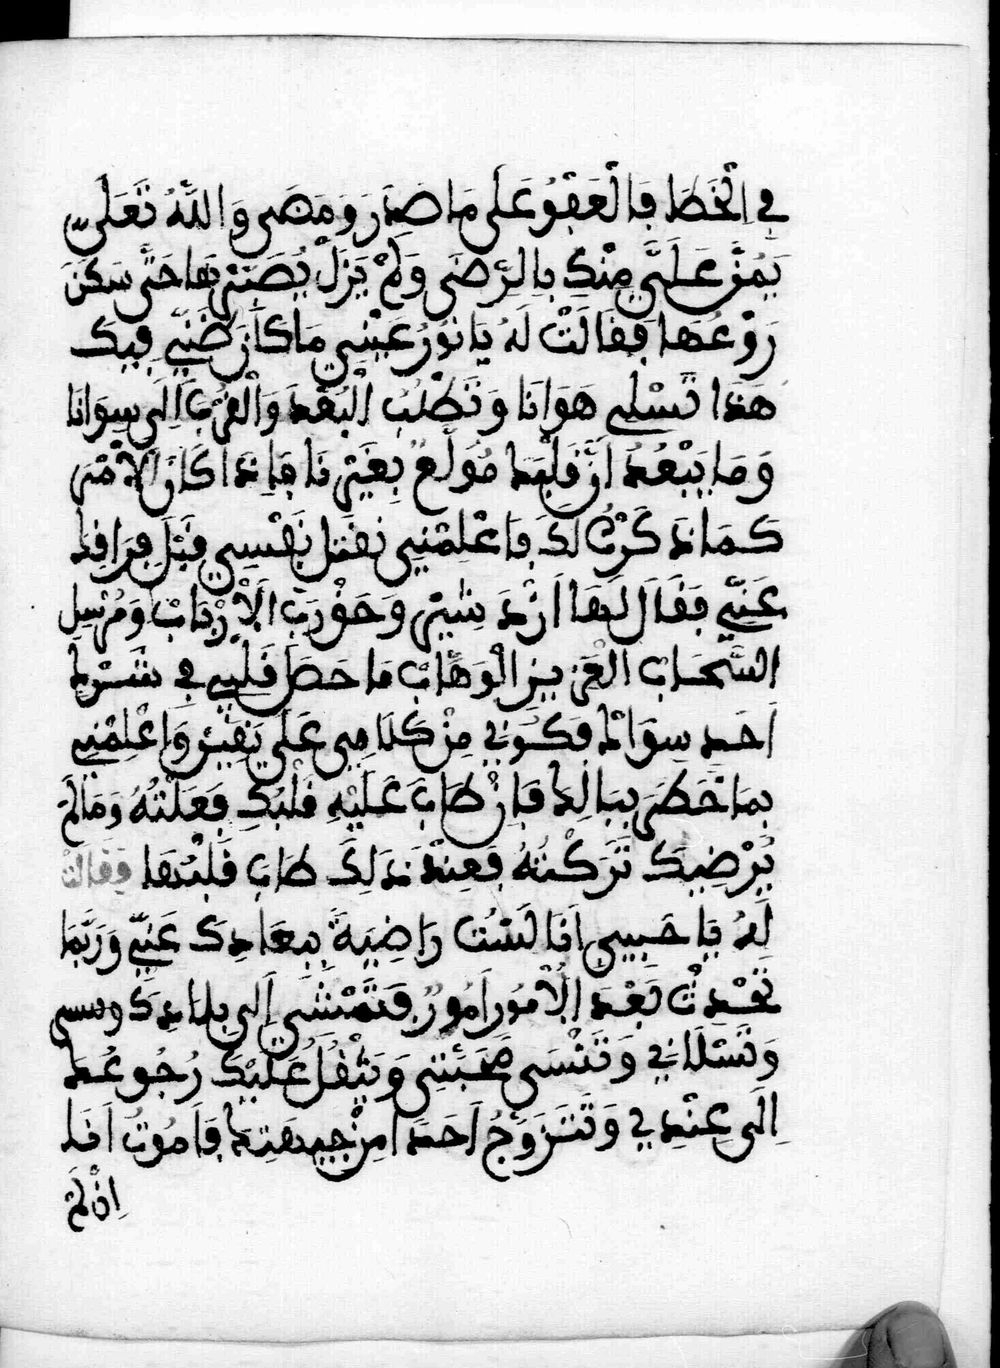 في الْخَطَا فَالْعَفْوُ عَلَى مَا صَدَرَ وَمَضَى وَاللَّهُ تَعَلَى
يَمُنُّ عَلَيَّ مِنْكِ بِالرِّضَى وَلَمْ يَزَلْ يُصَبِّرْهَا حَتَّى سَكَنَ
رَوْعُهَا فَقَالَتْ لَهُ يَا نُورُ عَيْنِي مَا كَانَ ظَنِّي فِيكَ
هَذَا تَسْلَى هَوَانَا وَتَطْلُبُ الْبُعْدَ وَالْقُرْبَ اِلَى سِوَانَا
وَمَا يَبْعُدُ اَنَّ قَلْبَكَ مُولَعٌ بِغَيْرِنَا فَاِذَا كَانَ الْأَمْرُ
كَمَا ذَكَرْتُ لَكَ فَاعْلِمْنِي نَقْتَلْ نَفْسِي قَبْلَ فِرَاقِكَ
عَنِّي فَقَالَ لَهَا اَزْدَشِيرْ وَحَقِّ رَبِّ الْأَرْبَابْ وَمُرْسِلِ
السَّحَابْ الْعَزِيزِ الْوَهَّابْ مَا حَصَلَ قَلْبِي فِي شَرَكِ
اَحَدٍ سِوَاكِ فَكُونِي مِنْ كَلَامِي عَلَى يَقِينْ وَاعْلِمْنِي
بِمَا خَطَرَ بِبَالِكِ فَاِنْ طَابَ عَلَيْهِ قَلْبُكِ فَعَلْتُهُ وَمَا لَمْ
يُرْضِيكِ تَرَكْتُهُ فَعِنْدَ ذَلِكَ طَابَ قَلْبُهَا فَقَالَتْ
لَهُ يَا حَبِيبِي اَنَا لَسْتُ رَاضِيَةً بِبِعَادِكَ عَنِّي وَرُبَّمَا
تَحْدُثُ بَعْدَ الْأُمُورِ اُمُورٌ فَتَمْشِي اِلَى بِلَادِكَ
وَتَسْلَانِي وَتَنْسَى مَحَبَّتِي وَيَثْقُلُ عَلَيْكَ رُجُوعُكَ
اِلَى عِنْدِي وَتَتَزَوَّجُ اَحَدًا مِنْ جِهَتِكَ فَاَمُوتُ اَنَا
اِنْ لَمْ